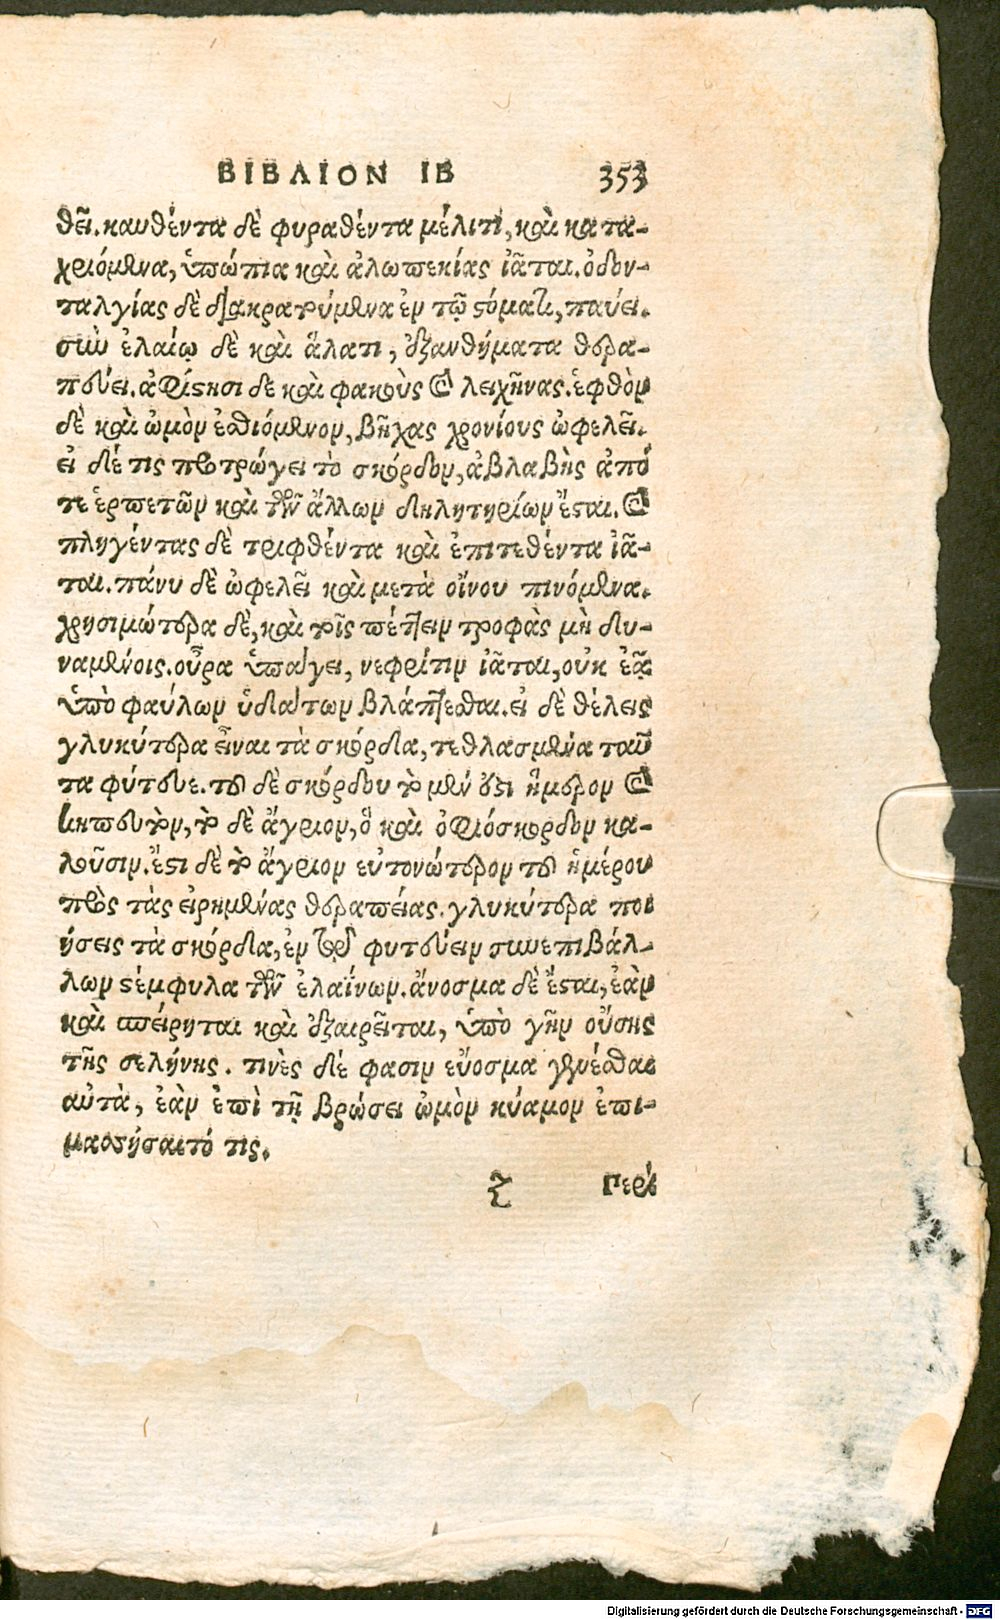 ΒΙΒΛΙΟΝ ΙΒ 353
θεῖ. καυθέντα δὲ φυραθέντα μέλιτι, καὶ κατα-
χριόμενα, ὑπώπια καὶ ἀλωπεκίας ἰᾶται. ὀδον-
ταλγίας δὲ διακρατούμενα ἐν τῷ στόματι, παύει.
σὺν ἐλαίῳ δὲ καὶ ἅλατι, ἐξανθήματα θερα-
πεύει. ἀφίστησι δὲ καὶ φακοὺς καὶ λειχῆνας. ἑφθὸν
δὲ καὶ ὠμὸν ἐσθιόμενον, βῆχας χρονίους ὠφελεῖ.
εἰ δέ τις προτρώγει τὸ σκόρδον, ἀβλαβὴς ἀπό
τε ἑρπετῶν καὶ τῶν ἄλλων δηλητηρίων ἔσται. καὶ
πληγέντας δὲ τριφθέντα καὶ ἐπιτεθέντα ἰᾶ-
ται. πάνυ δὲ ὠφελεῖ καὶ μετὰ οἴνου πινόμενα.
χρησιμώτερα δὲ, καὶ τοῖς πέττειν τροφὰς μὴ δυ-
ναμένοις. οὖρα ὑπάγει, νεφρίτιν ἰᾶται, οὐκ ἐᾷ
ὑπὸ φαύλων ὑδάτων βλάπτεσθαι. εἰ δὲ θέλεις
γλυκύτερα εἶναι τὰ σκόρδια, τεθλασμένα ταῦ
τα φύτευε. τοῦ δὲ σκόρδου τὸ μέν ἐστι ἥμερον καὶ
κηπευτὸν, τὸ δὲ ἄγριον, ὃ καὶ ὀφιόσκορδον κα-
λοῦσιν. ἔστι δὲ τὸ ἄγριον εὐτονώτερον τοῦ ἡμέρου
πρὸς τὰς εἰρημένας θεραπείας. γλυκύτερα ποι
ήσεις τὰ σκόρδια, ἐν τῷ φυτεύειν συνεπιβάλ-
λων στέμφυλα τῶν ἐλαΐνων. ἄνοσμα δὲ ἔσται, ἐὰν
καὶ σπείρηται καὶ ἐξαιρεῖται, ὑπὸ γῆν οὔσης
τῆς σελήνης. τινὲς δέ φασιν εὔοσμα γενέσθαι
αὐτὰ, ἐὰν ἐπὶ τῇ βρώσει ὠμὸν κύαμον ἐπι-
μασσήσαιτό τις.
Περὶ
Digitalisierung gefördert durch die Deutsche Forschungsgemeinschaft - DFG